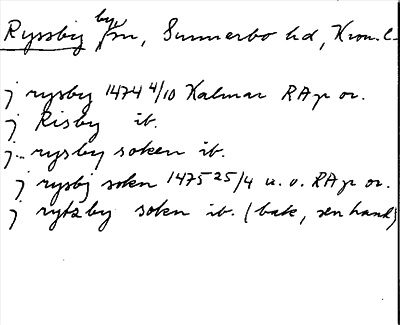 Ryssby by, sn, Sunnerbo hd, Kron. l.
j rysby 1474 4/10 Kalmar RAp or.
j Risby ib.
j rysby soken ib.
j rysbj sokn 1475 25/4 u. o. RAp or.
j rytzby soken ib. (bak, sen hand)